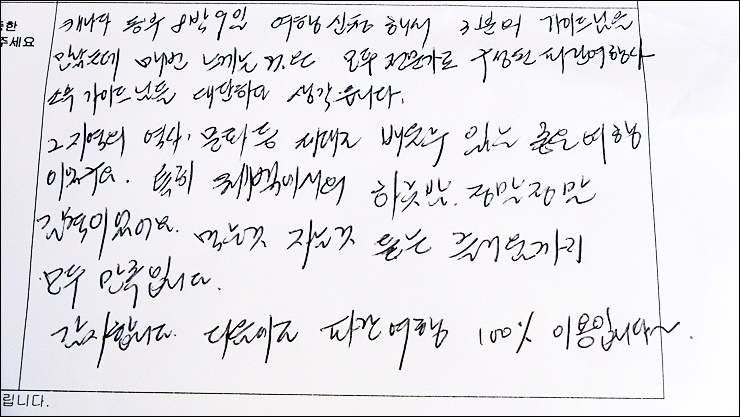 캐나다 동부 8박9일 여행 신청 해서 3분의 가이드님을
만났는데 매번 느끼는 거로 모두 전문가로 구성된 파란여행사
소속 가이드님들 대단하다 생각 듭니다.
그 지역의 역사·문화 등 제대로 배울수 있는 좋은 여행
이었어요. 특히 퀘벡에서의 하룻밤. 정말 정말
감동이었어요. 먹는것 자는것 듣는 즐거움까지
모두 만족입니다.
감사합니다. 다음에도 파란여행 100% 이용입니다~.
주세요
립니다.